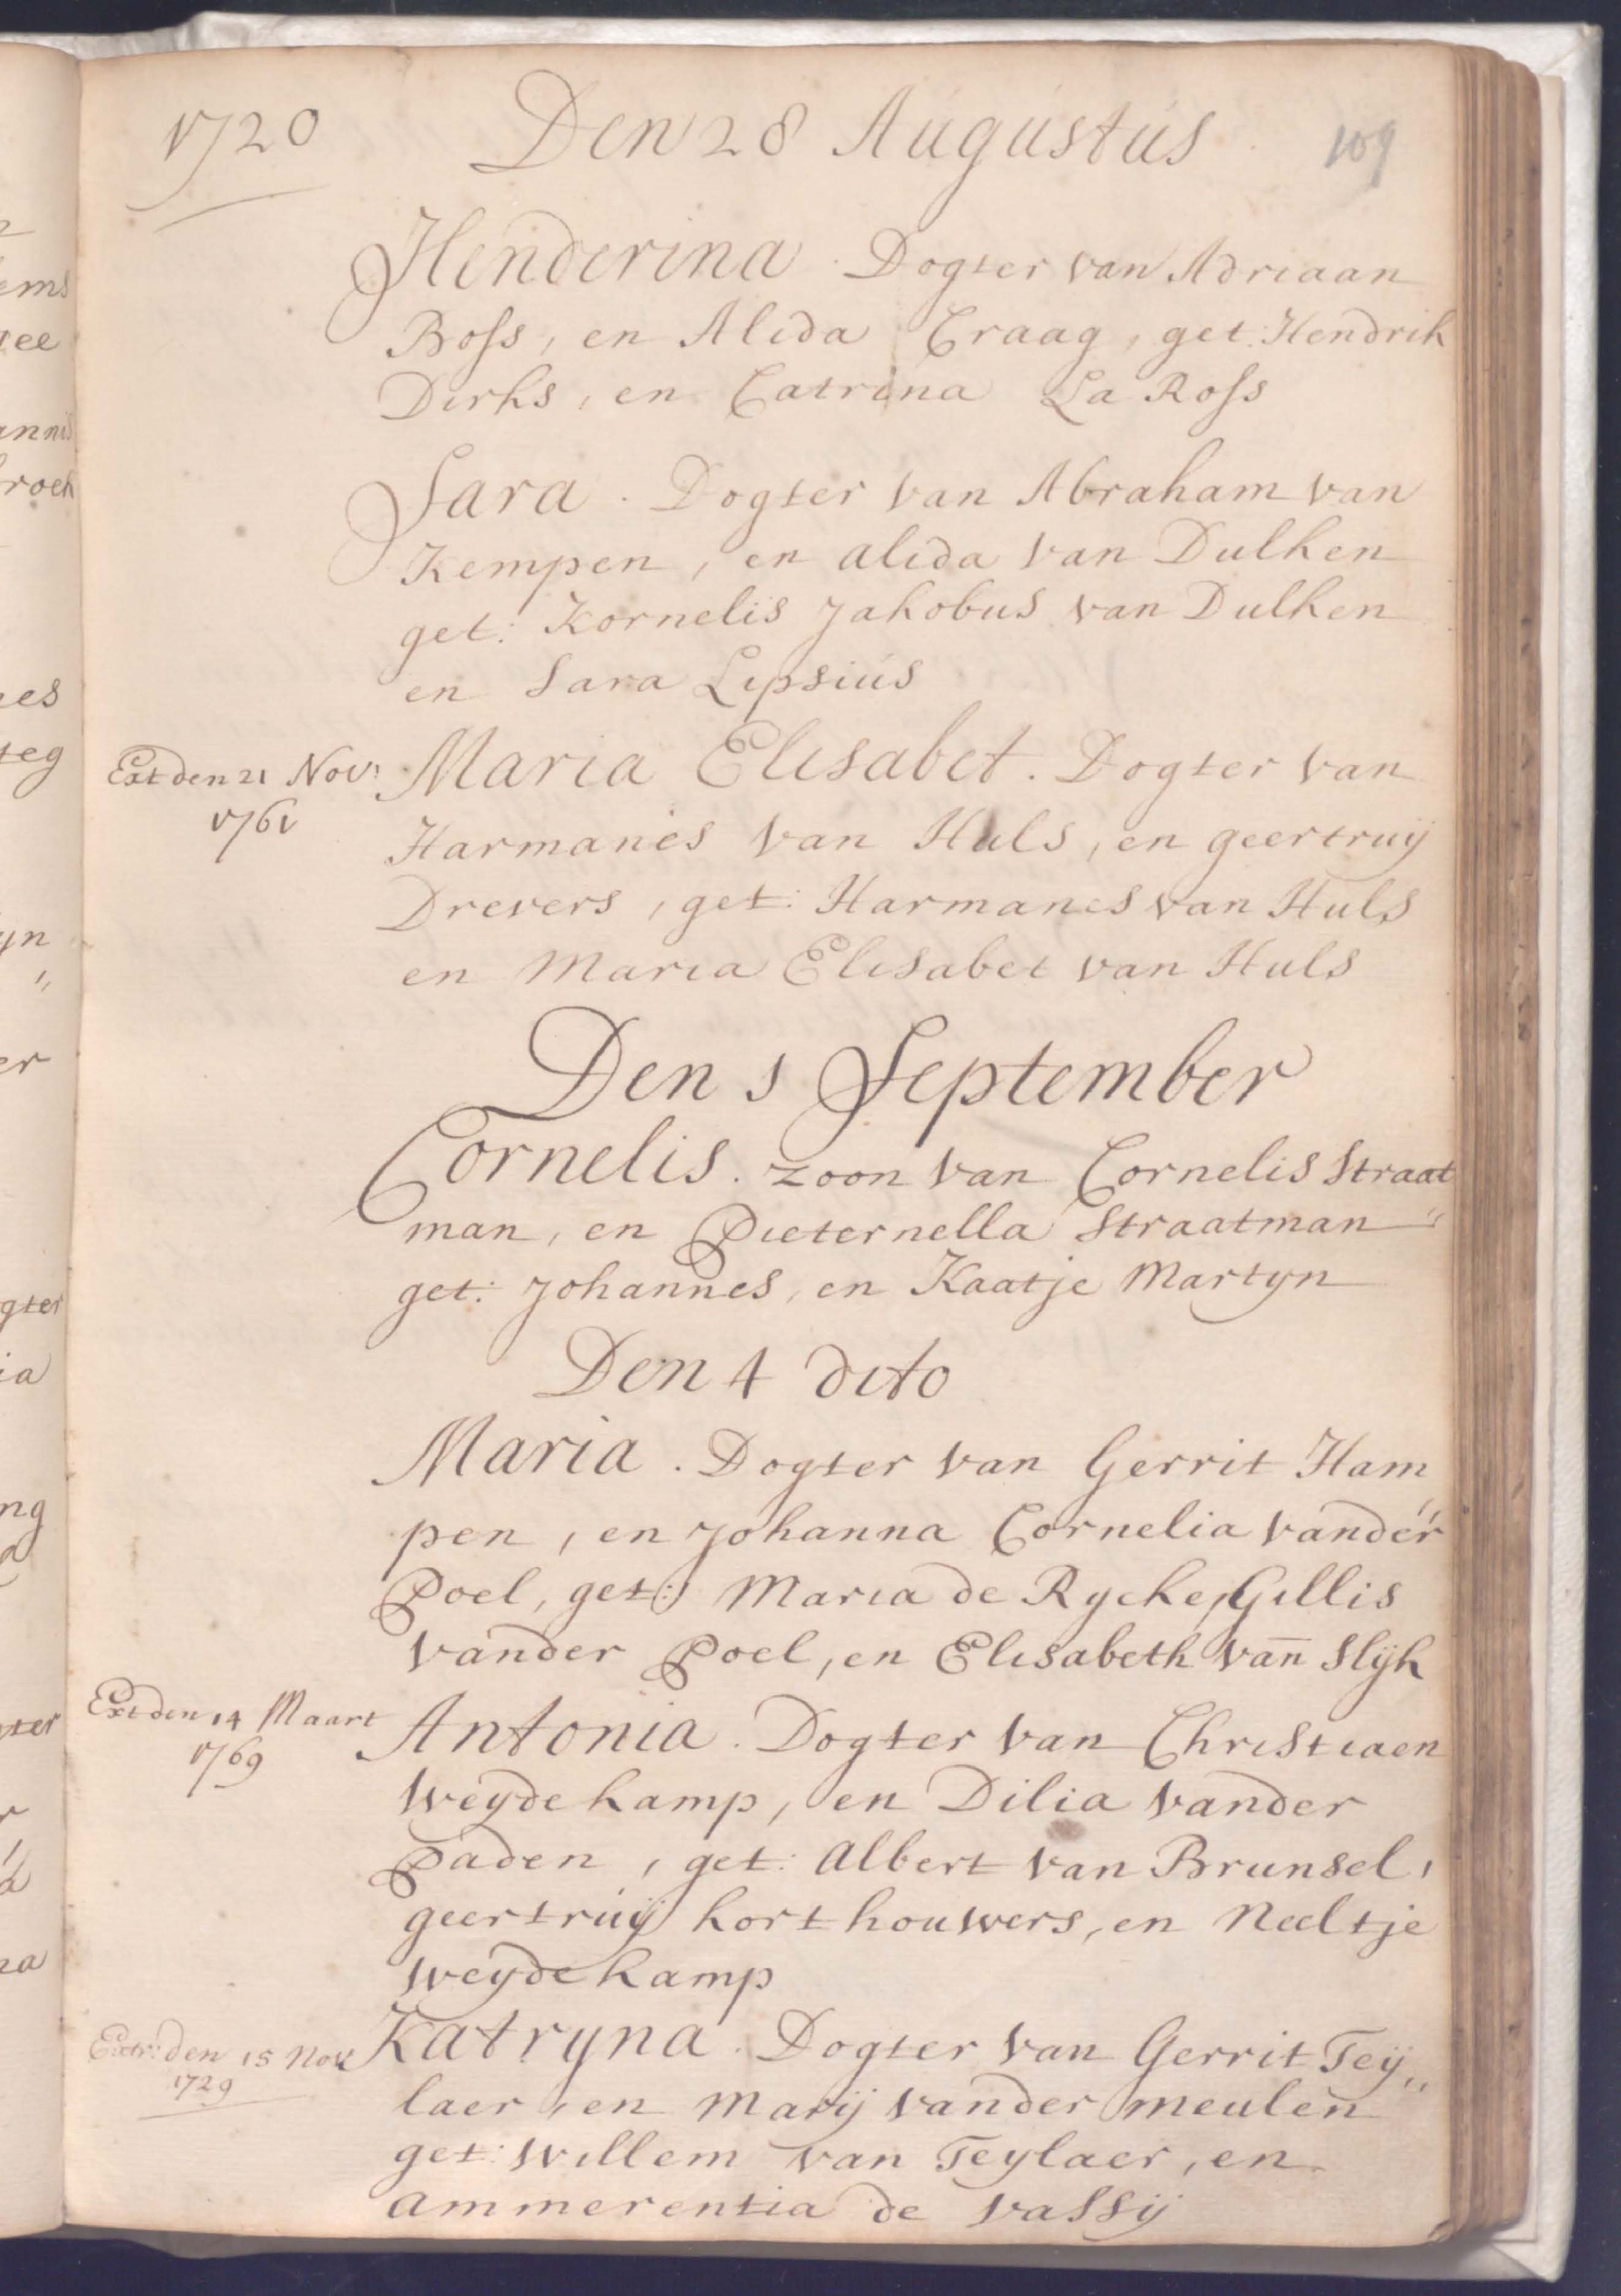 1720 Den 28 Augustus 109
Henderina. Dogter van Adriaan
Boss, en Alida Craag, get: Hendrik
Dirks, en Catrina La Ross
Sara. Dogter van Abraham van
Kempen, en alida van Dulken
get: Kornelis Jakobus van Dulken
en Sara Lipsius
Ext den 21 Nov:
1761
Maria Elisabet. Dogter van
Harmanes van Huls, en geertruij
Drevers, get: Harmanes van Huls
en Maria Elisabet van Huls
Den 1 September
Cornelis. zoon van Cornelis Straat
man, en Pieternella Straatman
get: Johannes, en Kaatje Martyn
Den 4 dito
Maria. Dogter van Gerrit Ham
pen, en Johanna Cornelia vander
Poel, get: Maria de Rycke, Gillis
vander Poel, en Elisabeth van Slijk
Ext den 14 Maart
1769
Antonia. Dogter van Christiaen
weyde kamp, en Dilia vander
Paden, get: albert van Brunsel,
geertruij korthouwers, en Neeltje
weyde kamp
Extr: den 15 Nov
1729
Katryna. Dogter van Gerrit Teij„
laer, en Marij vander meulen
get: Willem van Teylaer, en
ammerentia de vassij
ems
ee
annis
roek
es
teg
yn
"
er
gter
ia
ng
ter
na